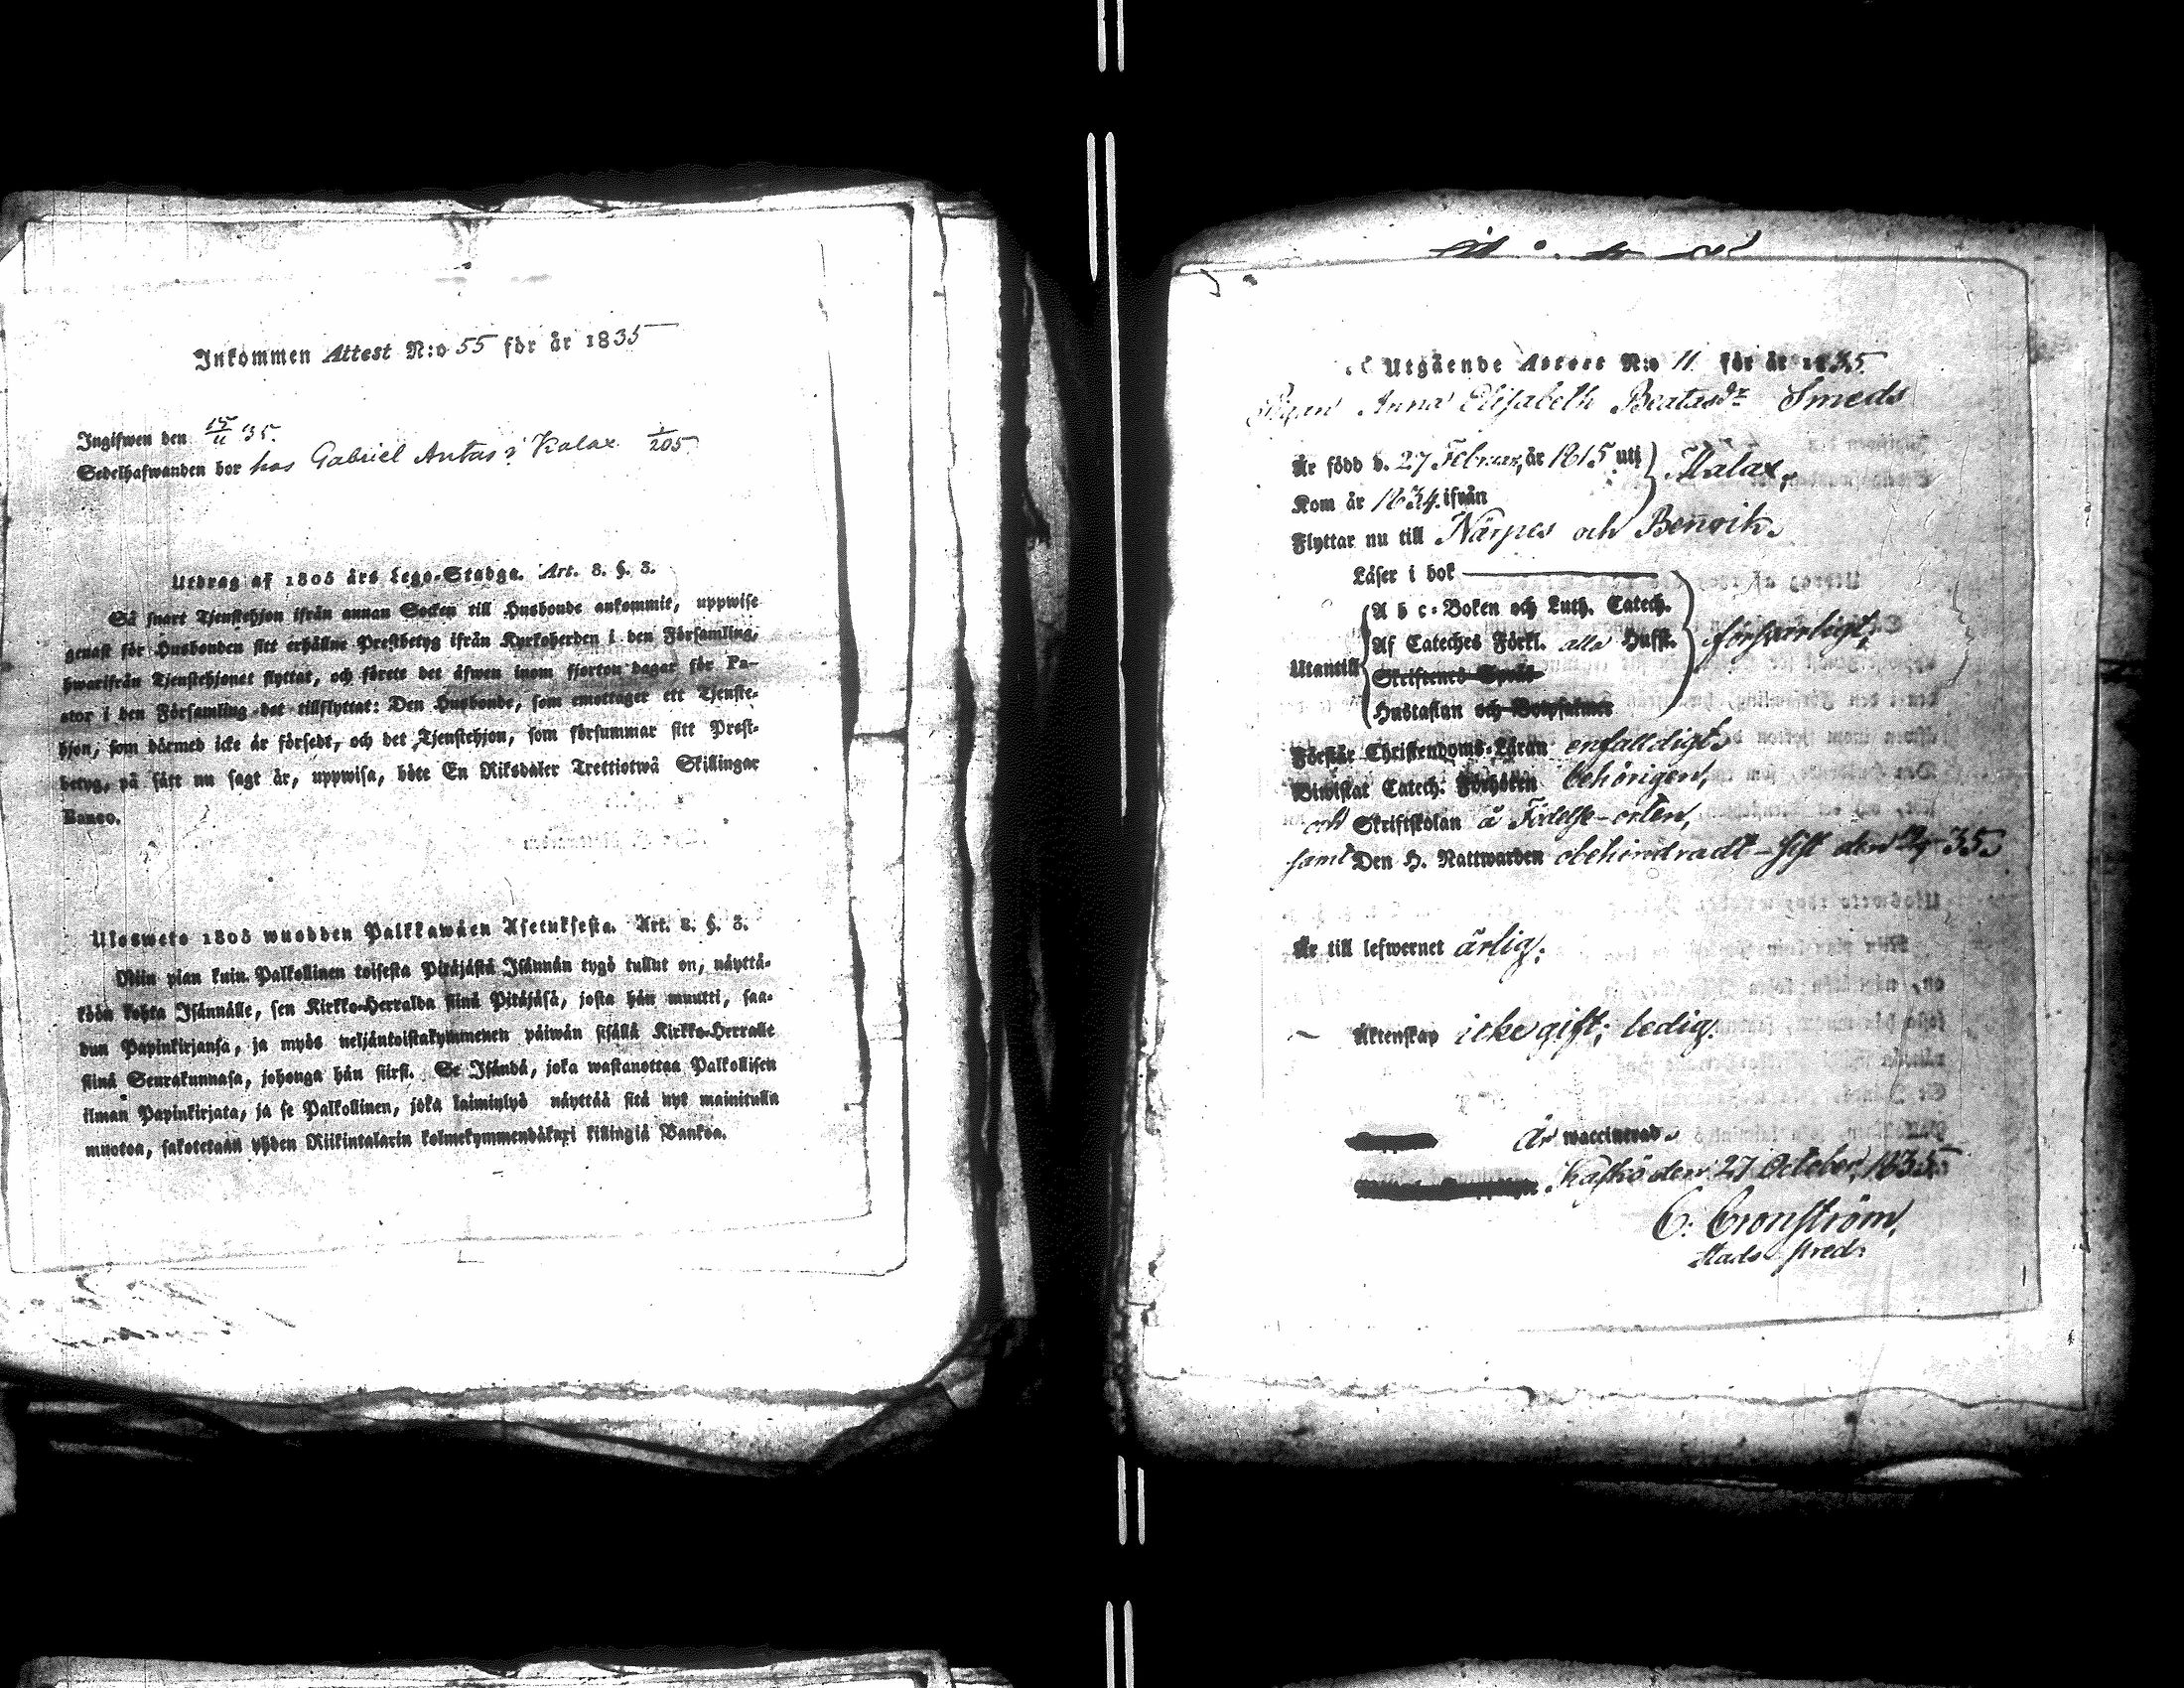 Inkommen Attest N:o 55 för år 1835
Ingifwen den 15/11 35.
Sedelhafwanden bor hos Gabriel Antas i Kalax 1/205
Utdrag af 1805 års Lego-Stadga. Art. 8. §. 3.
Så snart Tjenstehjon ifrån annan Socken till Husbonde ankommit, uppwise
genast för Husbonden sitt erhållne Prestbetyg ifrån Kyrkoherden i den Församling,
hwarifrån Tjenstehjonet flyttat, och förete det äfwen inom fjorton dagar för Pa-
stor i den Församling det tillflyttat: Den Husbonde, som emottager ett Tjenste-
hjon, som därmed icke är försedt, och det Tjenstehjon, som försummar sitt Prest-
betyg, på sätt nu sagt är, uppwisa, böte En Riksdaler Trettiotwå Skillingar
Banco.
Ulosweto 1805 wuodden Palkkawäen Asetuksesta. Art. 8. §. 3.
Niin pian kuin Palkollinen toisesta Pitäjästä Isännän tygö tullut on, näyttä-
köön kohta Isännälle, sen Kirkko-Herralda siinä Pitäjäsä, josta hän muutti, saa-
dun Papinkirjansa, ja myös neljäntoistakymmenen päiwän sisällä Kirkko-Herralle
siinä Seurakunnasa, johonga hän siirsi. Se Isändä, joka wastanottaa Palkollisen
ilman Papinkirjata, ja se Palkollinen, joka laiminlyö näyttää sitä nyt mainitulla
muotoa, sakotetaan yhden Riikintalarin kolmekymmendäkaxi killingiä Bankoa.
Utgående Attest N:o 11 för år 1835.
Pigan Anna Elisabeth Beatasdr Smeds
Är född d. 27 Februar, år 1815 uti } Malax,
Kom år 1834. ifrån
Flyttar nu till Närpes och Benvik.
Läser i bok
A b c-Boken och Luth. Catech.
Af Cateches Förkl. alla Hufst. försvarligt,
Utantill
Skriftenes Språk
Hustaflan och Botpsalmer
Förstår Christendoms-Läran enfalldigt,
Biwistat Catech. Förhören behörigen,
och Skriftskolan å Födelse-orten,
samt Den H. Nattwarden obehindradt - sist den 35.
Är till lefwernet ärlig;
Äktenskap icke gift; ledig.
Är waccinerad.
Kaskö den 27 October, 1835.
C. Cronström,
Stads Pred: